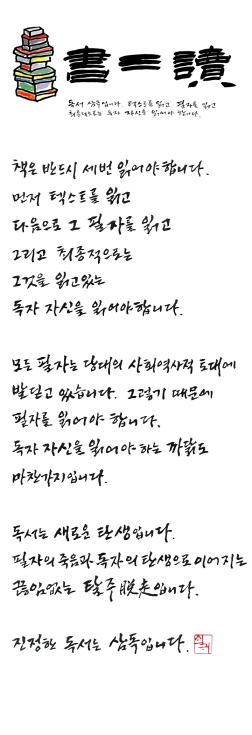 書三讀
독서 삼독입니다. 텍스트를 읽고 필자를 읽고
최종적으로는 독자 자신을 읽어야 합니다.
책은 반드시 세번 읽어야 합니다.
먼저 텍스트를 읽고
다음으로 그 필자를 읽고
그리고 최종적으로는
그것을 읽고있는
독자 자신을 읽어야 합니다.
모든 필자는 당대의 사회역사적 토대에
발딛고 있습니다. 그렇기 때문에
필자를 읽어야 합니다.
독자 자신을 읽어야 하는 까닭도
마찬가지입니다.
독서는 새로운 탄생입니다.
필자의 죽음과 독자의 탄생으로 이어지는
끊임없는 탈주脫走입니다.
진정한 독서는 삼독입니다.